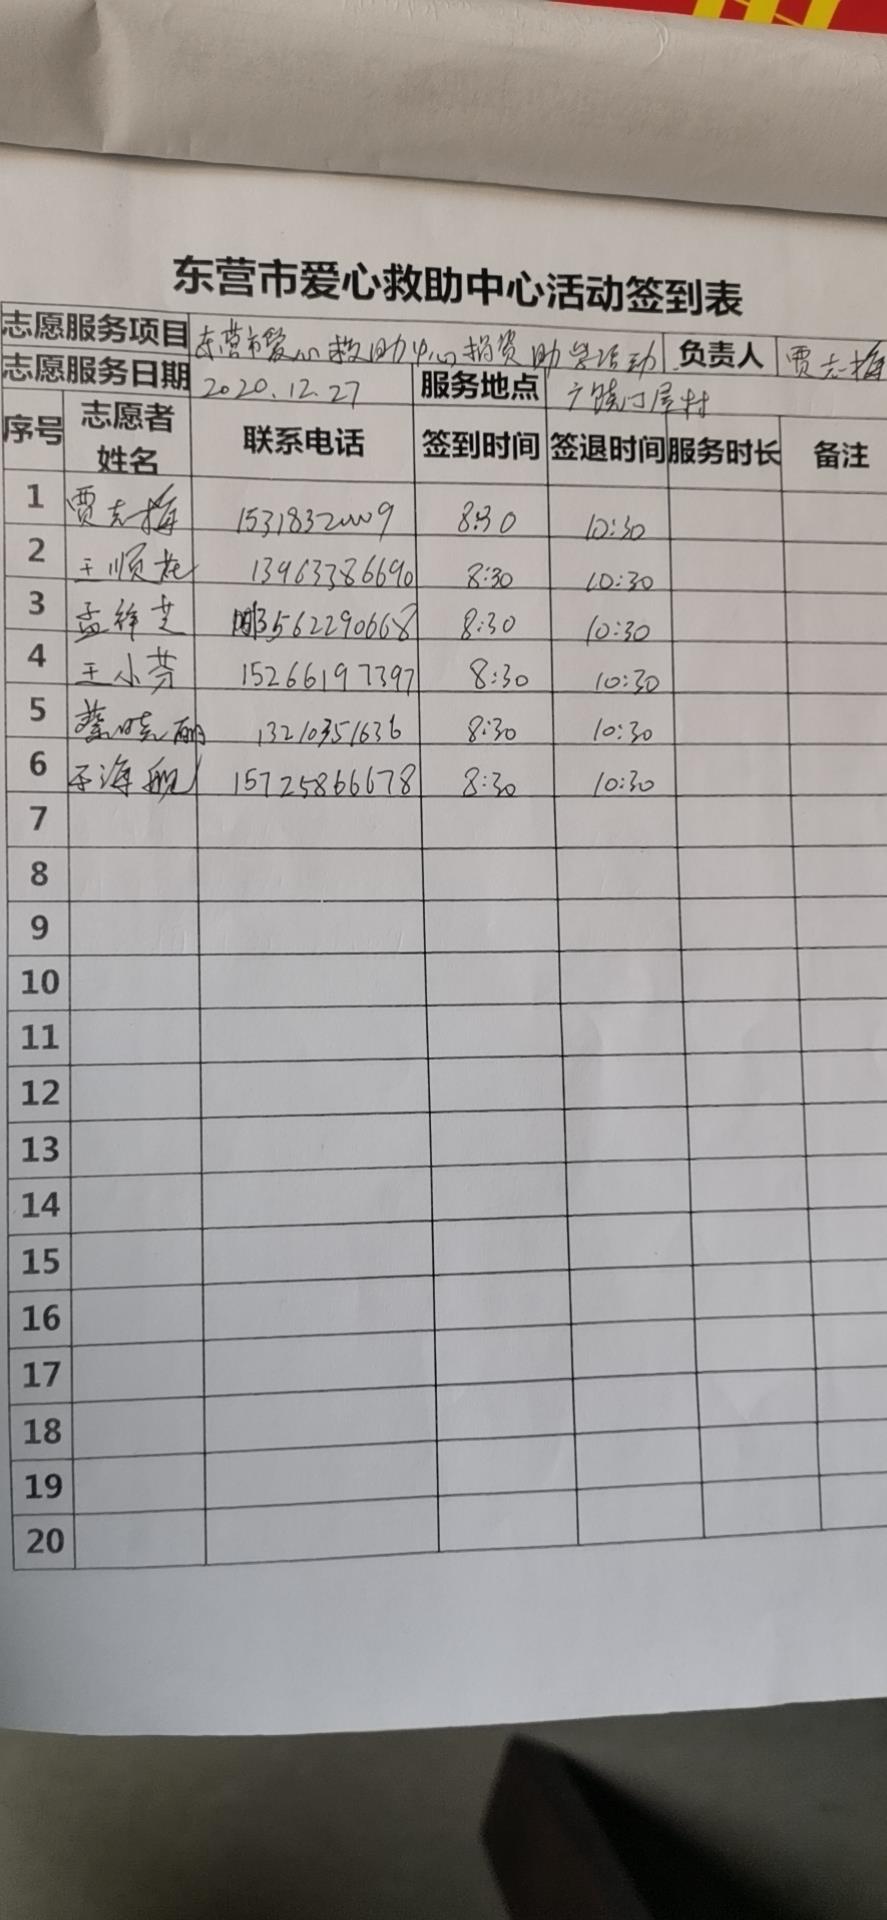 东营市爱心救助中心活动签到表
志愿服务项目 东营市爱心救助中心捐资助学活动 负责人 贾志梅
志愿服务日期 2020.12.27 服务地点 广饶门屋村
序号 志愿者姓名 联系电话 签到时间 签退时间 服务时长 备注
1 贾志梅 8:30 10:30
2 王顺花 13963386690 8:30 10:30
3 孟祥芝 13562290668 8:30 10:30
4 王小芬 15266197397 8:30 10:30
5 蔡晓丽 13210351636 8:30 10:30
6 海舰 15725866678 8:30 10:30
7
8
9
10
11
12
13
14
15
16
17
18
19
20